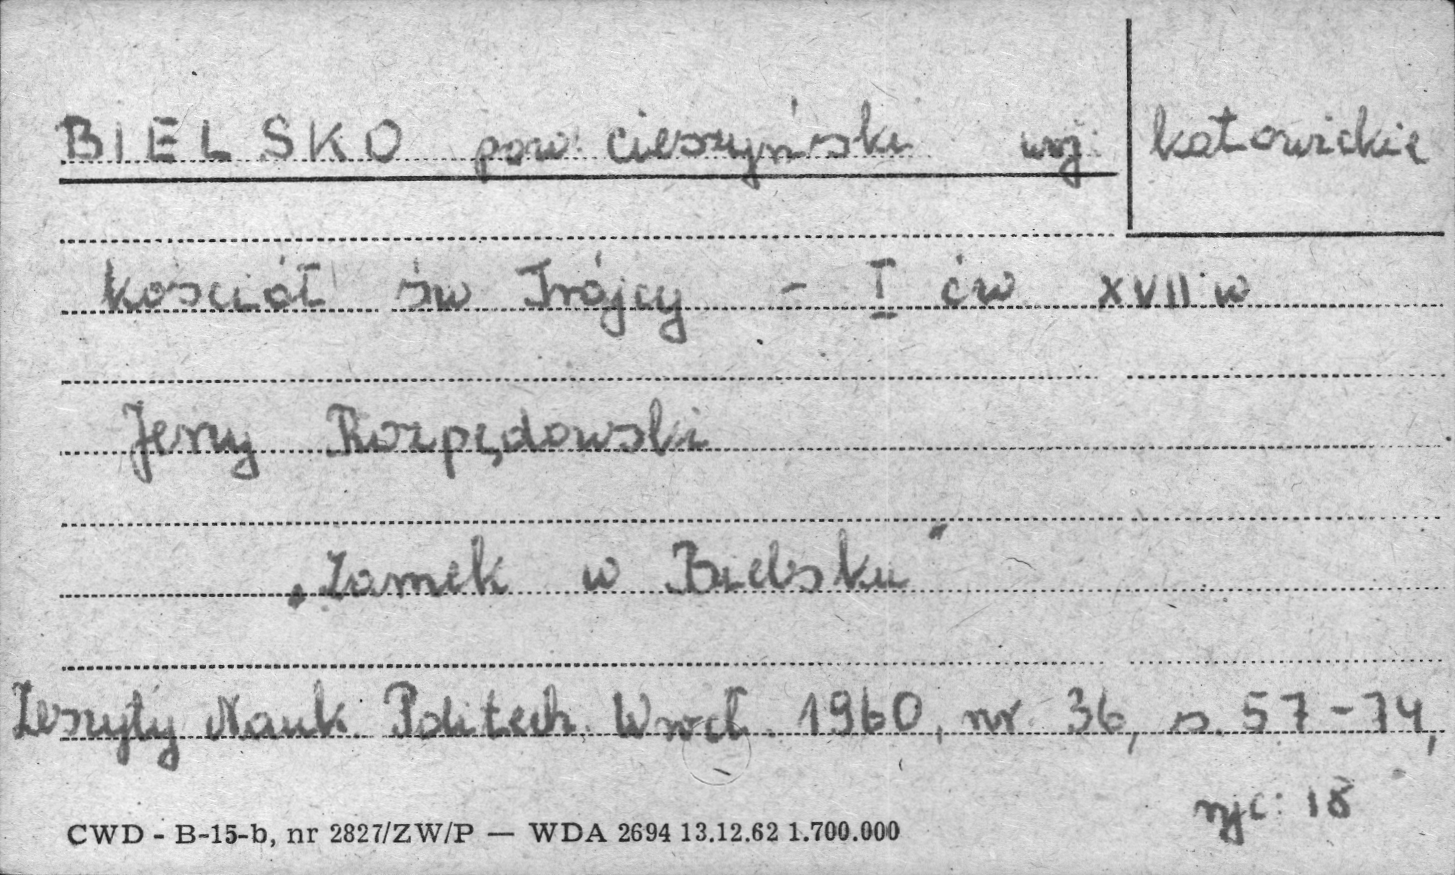 BIELSKO pow. cieszyński woj. katowickie
kościół św Trójcy - I ćw XVII w
Jerzy Rozpędowski
„Zamek w Bielsku"
Zeszyty Nauk. Politech. Wrocł. 1960, nr. 36, s. 57-74,
ryc: 18
CWD - B-15-b, nr 2827/ZW/P — WDA 2694 13.12.62 1.700.000